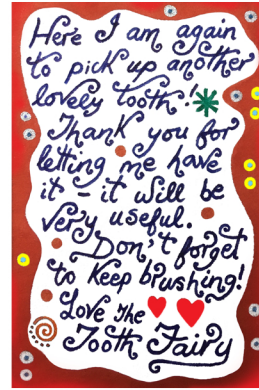 Here I am again
to pick up another
lovely tooth!
Thank you for
letting me have
it - it will be
very useful.
Don't forget
to keep brushing!
Love The
Tooth Fairy